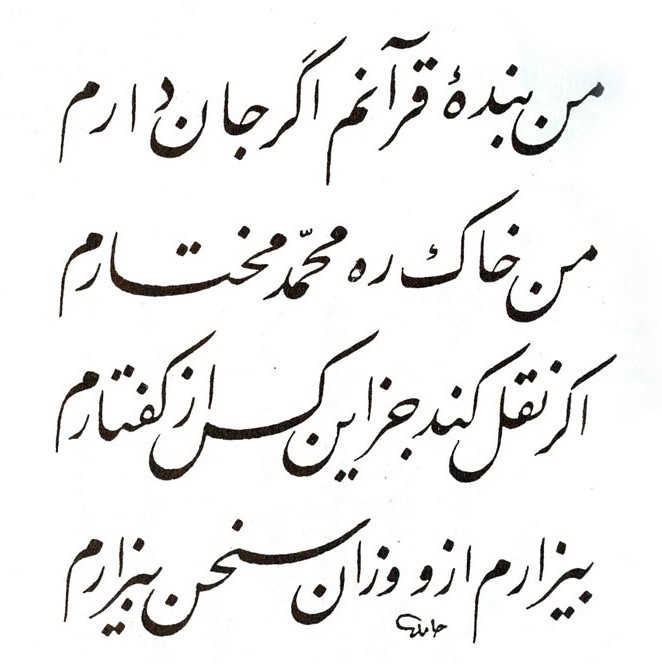 من بندۀ قرآنم اگر جان دارم
من خاک ره محمّد مختارم
اگر نقل کند جز این کس از گفتارم
بیزارم ازو وزان سخن بیزارم